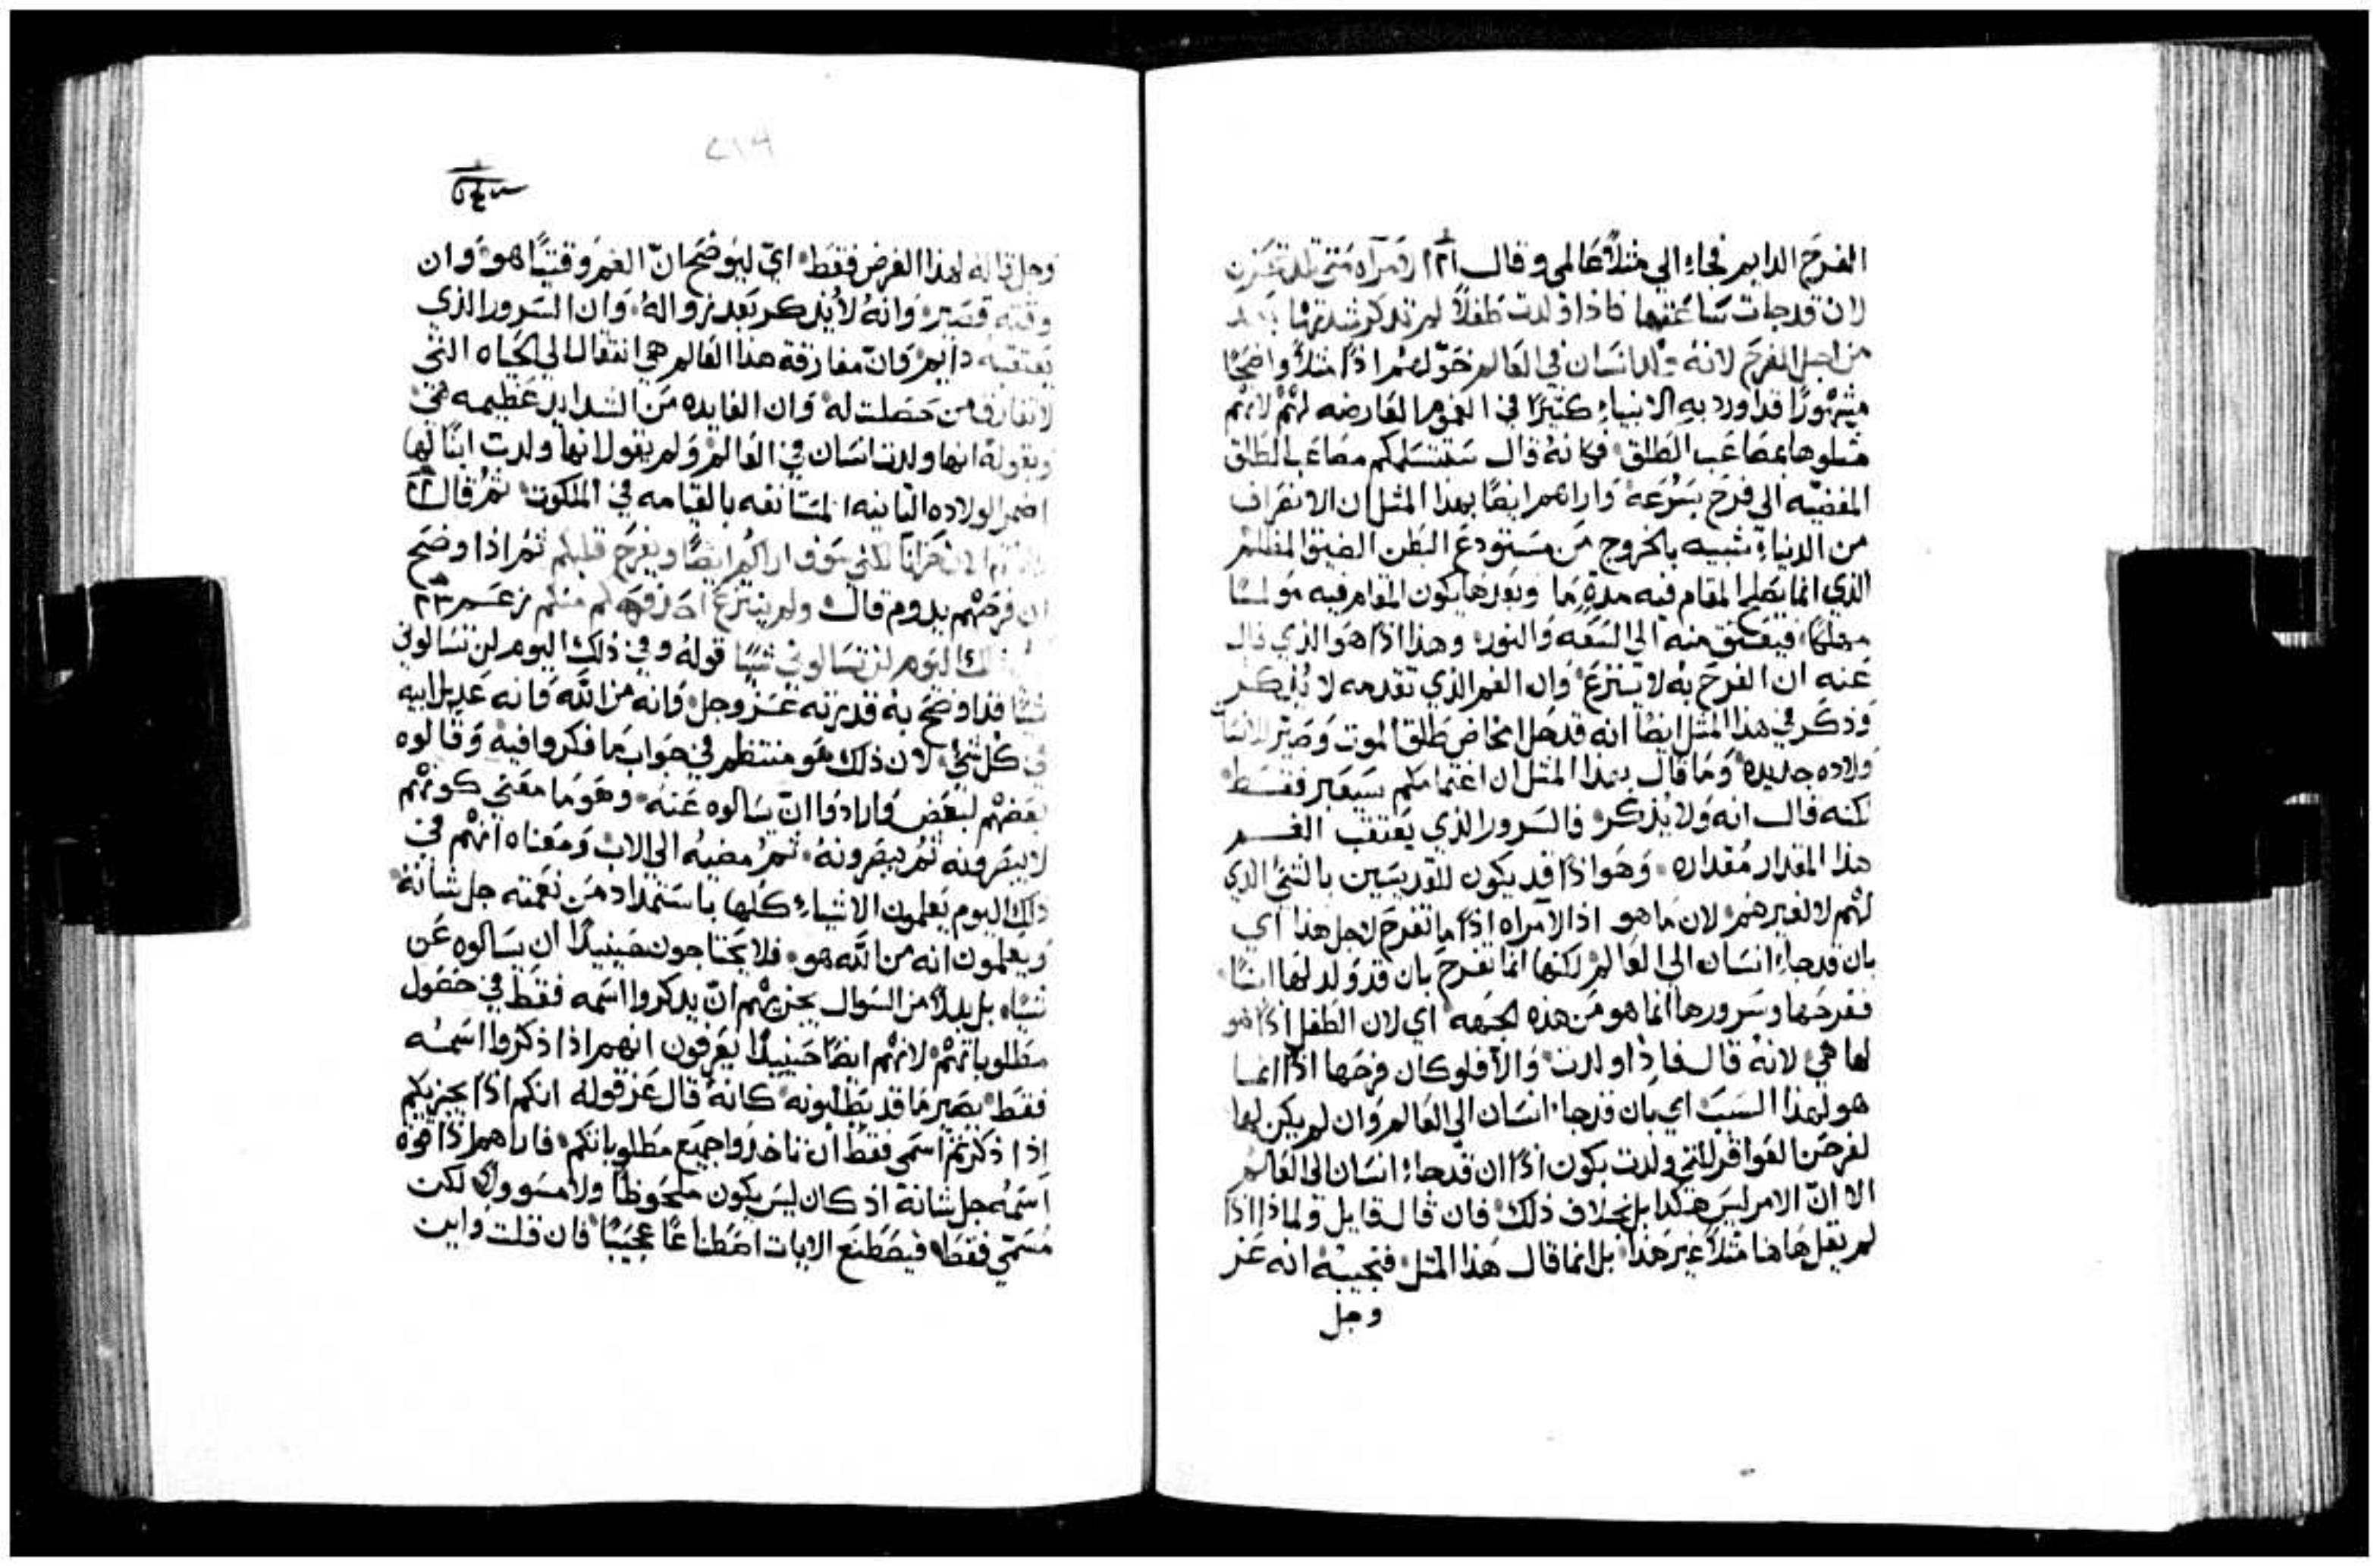 الفرح الدايم فجاء الي مثلاً عَالمي وقال ٢١ ارمراه متى تلد تحزن
لان قد جات سَاعتها فاذا ولدت طفلاً لم تذكر شدتها بعد
من اجل الفرح لانهُ ولد انسَان في العَالم حَوّلهم اذاً مثلاً واضحًا
مشهورًا قد اورد به الانبياء كثيرًا في الغموم العَارضه لهم لانهم
مثلوها بمصَاعب الطلق فكانهُ قال ستتسلمكم مصَاعب الطلق
المفضيّه الي فرح بسُرعَة وَاراهم ايضًا بهذا المثل ان الانصَراف
من الدنيا شبيه بالخروج مَن مسَتودع البَطن الضيق المظلم
الذي انما يصَلح المقام فيه مدة مَا وبعدها يكون المقام فيه مولمًا
مهلكًا فيعتق منه الي السَعَه وَالنور وهذا اذًا هَو الذي قال
عَنه ان الفرح به لا ينتزع وَان الغم الذي تقدمه لا يُذكر
وَذكر في هذا المثل ايضًا انه قد حَل امخاض طلق الموت وَصَيّر للانسَان
وَلاده جديده وَمَا قال بهذا المثل ان اغتمامكم سَيَعبر فقط
لكنه قال انه وَلا يُذكر فالسَرور الذي يَعتقب الغم
هذا المقدار مُقداره وَهوَ اذًا قد يكون للقديسَين بالشي الذي
لهم لا لغيرهم لان مَا هو اذ الامراه اذًا ما تفرح لاجل هذا اي
بان قد جاء انسَان الي العَالم لكنها انما تفرحَ بان قد وَلد لهَا ابنًا
ففرحَها وسَرورها انما هو مَن هذه الجَهه اي لان الطفل اذًا هو
لها هي لانهُ قال فاذا ولدت وَالاّ فلو كان فرحَها اذًا انما
هو لهذا السَببَ اي بان قد جاء انسَان الي العَالم وَان لم يكن لها
لفرحَن العَواقر للتي ولدت بكون اذًا ان قد جاء انسَان الي العَالم
الا انّ الامر ليسَ هَكذا بل بخلاف ذلك فان قال قايل ولماذا اذًا
لم يقل هَاهنا مثلاً غير هَذا بل انما قال هَذا المثل فنجيبهُ انه عَز
وجل
٢١٩
وجل قاله لهذا الغرض فقط ايّ ليوضحَ انّ الغم وَقتيًا هو وَان
وقته قصَير وَانهُ لا يُذكر بَعد زوالهُ وَان السَرور الذي
يَعتقبهُ دايم وَانّ مفارقة هذا العَالم هي انتقال الي الحَياه التي
لا تفارق من حَصَلت له وَان الفايده مَن الشدايد عَظيمه هي
وبقوله انها ولدت انسَان في العَالم وَلم يقول انها ولدت ابنًا لها
اضمر الولاده الثانيه المسَتانفه بالقيامه في الملكوت ثمُ قال ٢٢
الان حَزانَا لكني سَوف اراكم ايضًا ويفرحَ قلبكم ثمُ اذا وضحَ
ان فرحَهم يدوم قال ولم ينتزعَ احَد فرحَكم منكم زعَم ٢٣
ذلك اليَوم لن تسَالوني شيًا قولهُ وفي ذلك اليوم لن تسَالوني
شيًا فقد اوضحَ به قدرته عَز وجل وَانه من اللّه وَانه عَديل ابيه
في كل شي لان ذلك هَو منتظم في جوَاب مَا فكروا فيه وَقالوه
بَعضهم لبَعَض وَارادوا انّ يسَالوه عَنهُ وهوَ مَا مَعَني كونهم
لا يبصَرونه ثمُ يبصَرونهُ ثمُ مضيهُ الي الاب وَمَعَناه انهم في
ذلك اليوم يَعلمون الاشياء كلها باستمداد مَن نعَمته جل شانهُ
وَيعلمون انه من اللّه هو فلا يحَتاجون حَينيذًا ان يسَالوه عَن
شيًا بل بدلاً من السَوال يجزيهم انّ يذكروا اسَمه فقط في حَصَول
مطلوباتهم لانهم ايضًا حَينيذًا يَعرفون انهم اذا ذكروا اسَمه
فقط يصَير مَا قد يطلبونه كانهُ قال عَز قوله انكم اذًا يجزيكم
اذا ذكرتم اسَمي فقط ان تاخذوا جميَع مَطلوباتكم فاراهم اذًا قوة
اسَمُه جل شانهُ اذ كان ليسَ يكون ملحَوظًا ولا مسَوولاً لكن
مُسَمّي فقط فيصَطنَع الايات اصَطناعًا عجيَبًا فان قلت واين